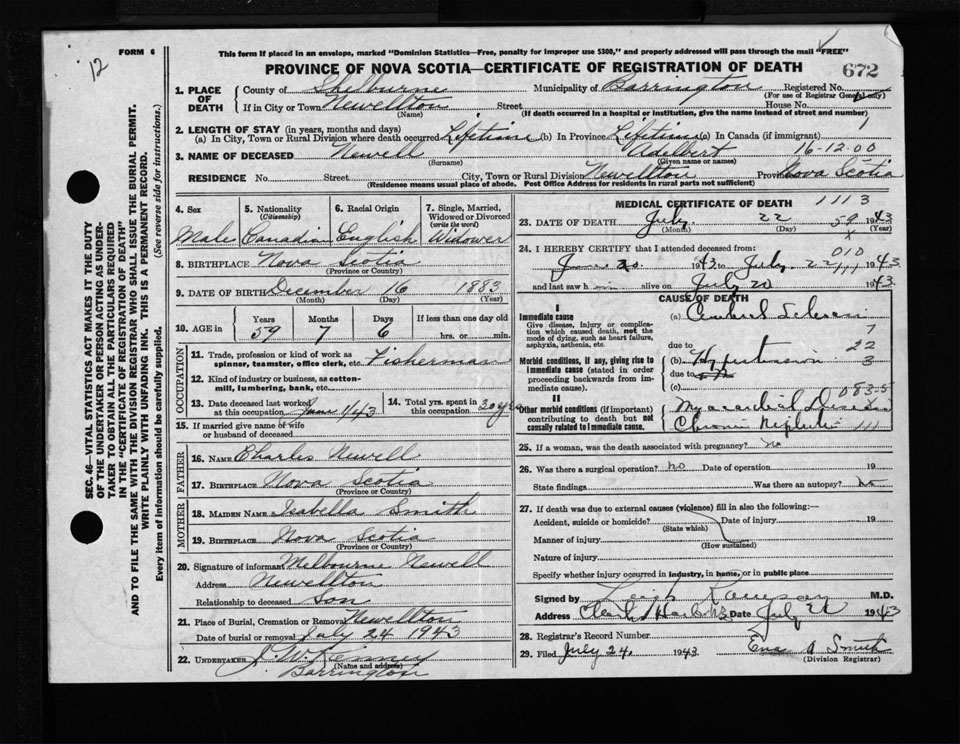 12
FORM 6
This form if placed in an envelope, marked "Dominion Statistics—Free, penalty for improper use $300," and properly addressed will pass through the mail "FREE"
PROVINCE OF NOVA SCOTIA—CERTIFICATE OF REGISTRATION OF DEATH
672
SEC. 46—VITAL STATISTICS ACT MAKES IT THE DUTY
OF THE UNDERTAKER OR PERSON ACTING AS UNDER-
TAKER TO OBTAIN ALL THE PARTICULARS REQUIRED
IN THE "CERTIFICATE OF REGISTRATION OF DEATH"
AND TO FILE THE SAME WITH THE DIVISION REGISTRAR WHO SHALL ISSUE THE BURIAL PERMIT.
WRITE PLAINLY WITH UNFADING INK. THIS IS A PERMANENT RECORD.
Every item of information should be carefully supplied. (See reverse side for instructions.)
1. PLACE OF DEATH
County of Shelburne Municipality of Barrington Registered No.
(For use of Registrar General only)
If in City or Town Newellton Street House No.
(Name) (If death occurred in a hospital or institution, give the name instead of street and number)
2. LENGTH OF STAY (in years, months and days)
(a) In City, Town or Rural Division where death occurred Lifetime (b) In Province Lifetime (c) In Canada (if immigrant)
3. NAME OF DECEASED Newell Adelbert 16-12.00
(Surname) (Given name or names)
RESIDENCE No. Street City, Town or Rural Division Newellton Province Nova Scotia
(Residence means usual place of abode. Post Office Address for residents in rural parts not sufficient)
4. Sex Male
5. Nationality (Citizenship) Canadian
6. Racial Origin English
7. Single, Married, Widowed or Divorced (write the word) Widower
8. BIRTHPLACE Nova Scotia
(Province or Country)
9. DATE OF BIRTH December 16 1883
(Month) (Day) (Year)
10. AGE in Years Months Days If less than one day old
59 7 6 hrs. or min.
OCCUPATION
11. Trade, profession or kind of work as
spinner, teamster, office clerk, etc. Fisherman
12. Kind of industry or business, as cotton-
mill, lumbering, bank, etc.
13. Date deceased last worked at this occupation June 1/43
14. Total yrs. spent in this occupation 30 yrs
15. If married give name of wife
or husband of deceased
FATHER
16. NAME Charles Newell
17. BIRTHPLACE Nova Scotia
(Province or Country)
MOTHER
18. MAIDEN NAME Isabella Smith
19. BIRTHPLACE Nova Scotia
(Province or Country)
20. Signature of informant Melbourne Newell
Address Newellton
Relationship to deceased Son
21. Place of Burial, Cremation or Removal Newellton
Date of burial or removal July 24 1943
22. UNDERTAKER J. W. Kenney
(Name and address)
Barrington
MEDICAL CERTIFICATE OF DEATH 1113
23. DATE OF DEATH July 22 59 1943
(Month) (Day) (Year)
24. I HEREBY CERTIFY that I attended deceased from:
June 20 1943 to July 22 1943
010
and last saw h im alive on July 20 1943
CAUSE OF DEATH
I
Immediate cause
Give disease, injury or complica-
tion which caused death, not the
mode of dying, such as heart failure,
asphyxia, asthenia, etc.
(a)
7
due to 22
Morbid conditions, if any, giving rise to
immediate cause (stated in order
proceeding backwards from im-
mediate cause).
(b) Hypertension 3
due to
(c)
083-5
II
Other morbid conditions (if important)
contributing to death but not
causally related to immediate cause.
Myocardial Disease
Chronic 111
25. If a woman, was the death associated with pregnancy? no
26. Was there a surgical operation? no Date of operation 19
State findings Was there an autopsy? no
27. If death was due to external causes (violence) fill in also the following:—
Accident, suicide or homicide? Date of injury 19
(State which)
Manner of injury
(How sustained)
Nature of injury
Specify whether injury occurred in industry, in home, or in public place
Signed by M.D.
Address Clark's Harbour Date July 22 1943
28. Registrar's Record Number
29. Filed July 24, 1943 Smith
(Division Registrar)